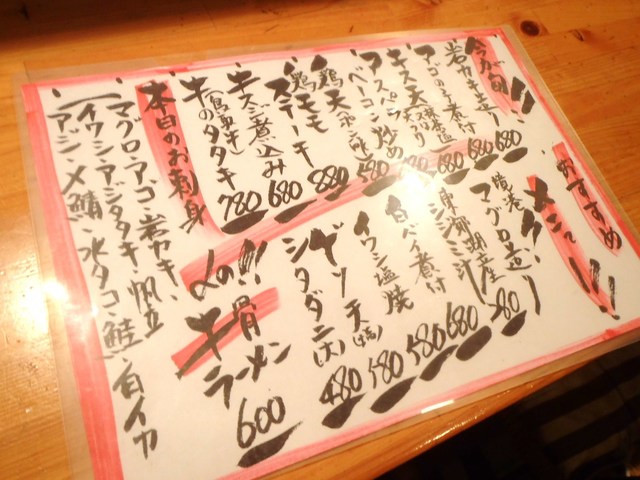 おすすめ
メニュー!!!
今が旬!!
岩ガキ造り 680
マゴの子煮付 680
キス天 680
アスパラベーコン炒め 580
鶏天(ポン酢) 880
鶏モモステーキ
牛スジ煮込み 680
牛のタタキ 780
本日のお刺身
マグロ・アゴ・岩ガキ・帆立
イワシ・アジタタキ・
アジ・〆鯖・水タコ・鮭・白イカ
境港マグロ造り
東郷湖産シジミ汁 680
白バイ煮付 580
イワシ塩焼 580
ゲソ天
シタダミ(大) 480
〆の!!!
牛骨
ラーメン
600